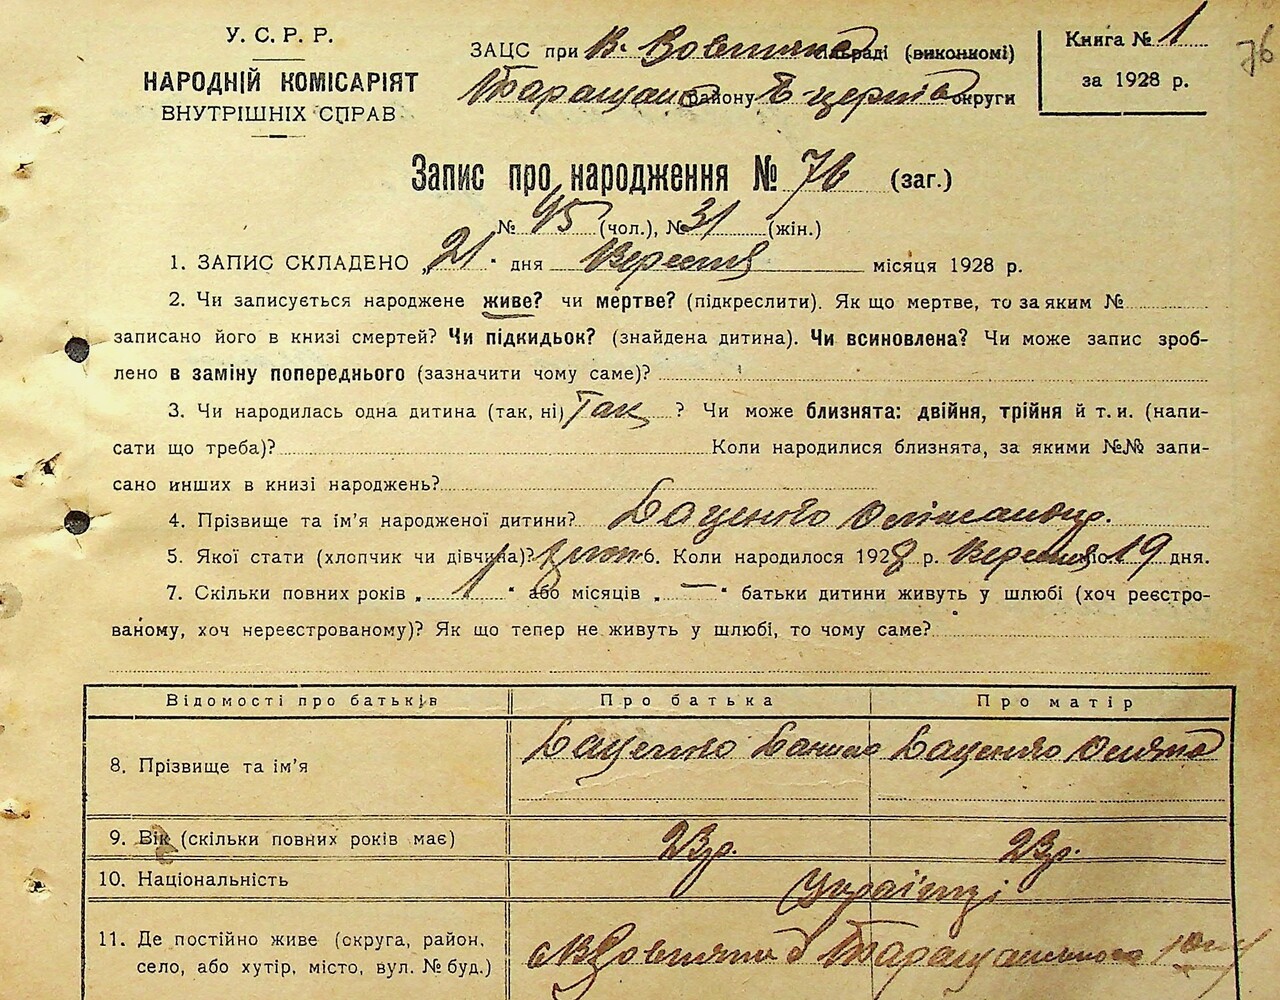 У. С. Р. Р.
НАРОДНІЙ КОМІСАРІЯТ
ВНУТРІШНІХ СПРАВ
ЗАЦС при В. Вовнянс сільраді (виконкомі)
Таращанс району Б-церків округи
Книга № 1
за 1928 р.
76
Запис про народження № 76 (заг.)
№ 45 (чол.), № 31 (жін.)
1. ЗАПИС СКЛАДЕНО „21" дня Вересня місяця 1928 р.
2. Чи записується народжене живе? чи мертве? (підкреслити). Як що мертве, то за яким №
записано його в книзі смертей? Чи підкидьок? (знайдена дитина). Чи всиновлена? Чи може запис зроб-
лено в заміну попереднього (зазначити чому саме)?
3. Чи народилась одна дитина (так, ні) Так ? Чи може близнята: двійня, трійня й т. и. (напи-
сати що треба)? Коли народилися близнята, за якими №№ запи-
сано инших в книзі народжень?
4. Прізвище та ім'я народженої дитини? Даценко Олександр.
5. Якої стати (хлопчик чи дівчина)? 6. Коли народилося 1928 р. Вересня 19 дня.
7. Скільки повних років „ 1 " або місяців „ — " батьки дитини живуть у шлюбі (хоч реєстро-
ваному, хоч нереєстрованому)? Як що тепер не живуть у шлюбі, то чому саме?
Відомості про батьків Про батька Про матір
8. Прізвище та ім'я Даценко Данило Даценко
9. Вік (скільки повних років має) 23 р. 23 р.
10. Національність Українці
11. Де постійно живе (округа, район,
село, або хутір, місто, вул. № буд.) Таращанського